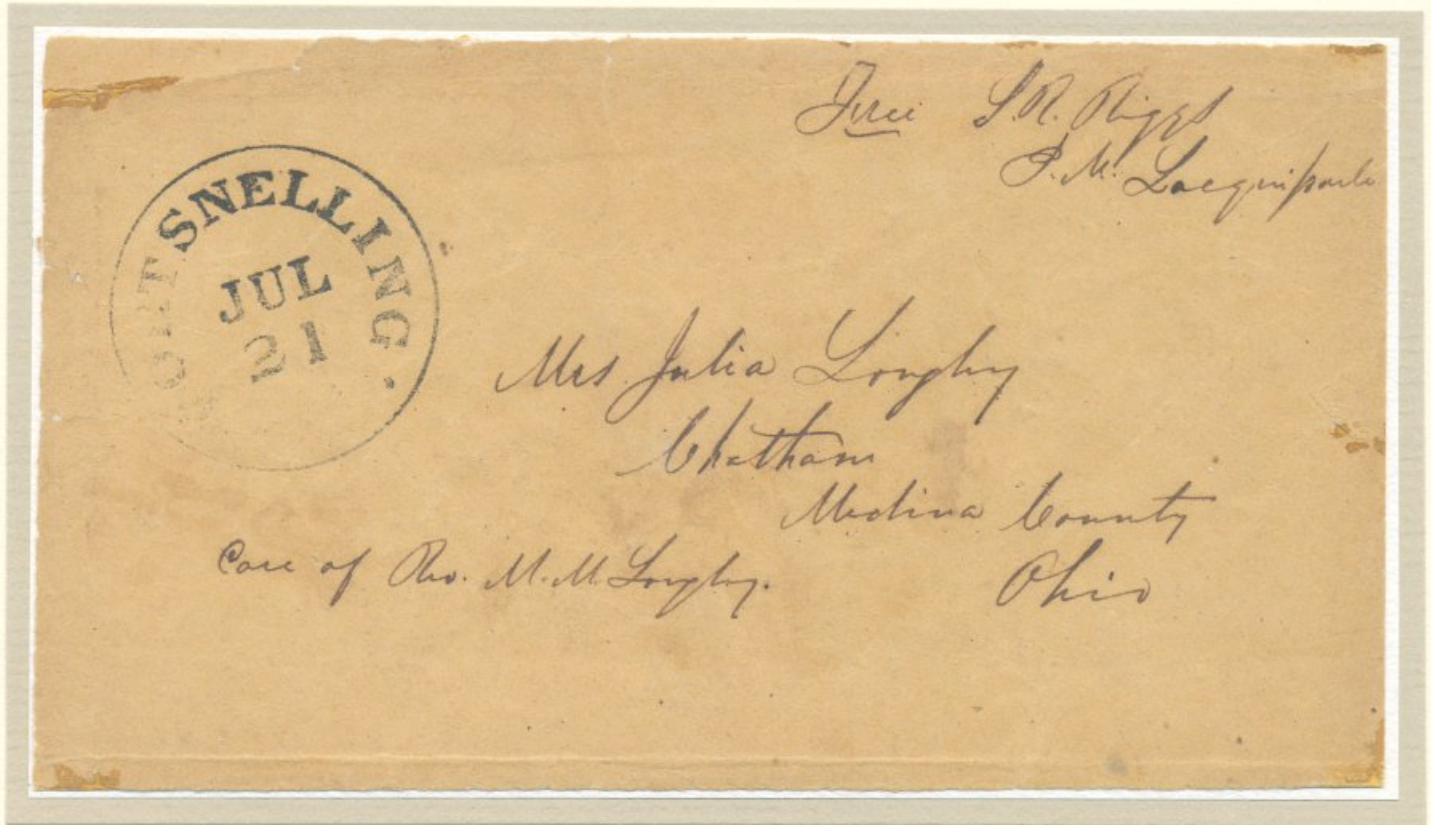 Free S. R. Riggs
P. M. Lacquiparle
FORT SNELLING
JUL
21
Mrs Julia Longley
Chatham
Medina County
Care of Rev. M. M. Longley.
Ohio